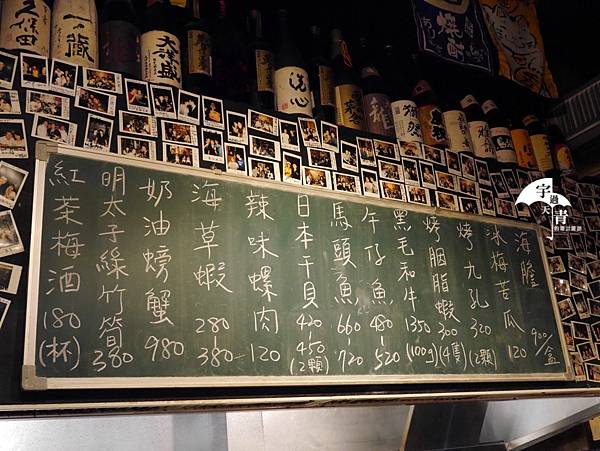 海膽 900/盒
冰梅苦瓜 120
烤九孔 320 (2顆)
烤胭脂蝦 300 (4隻)
黑毛和牛 1350 (100g)
午仔魚 480-520
馬頭魚 660-720
日本干貝 420-450 (2顆)
辣味螺肉 120
海草蝦 280-380
奶油螃蟹 980
明太子綠竹筍 380
紅茶梅酒 180 (杯)
久保田
一蔵
洗心
宇過天青